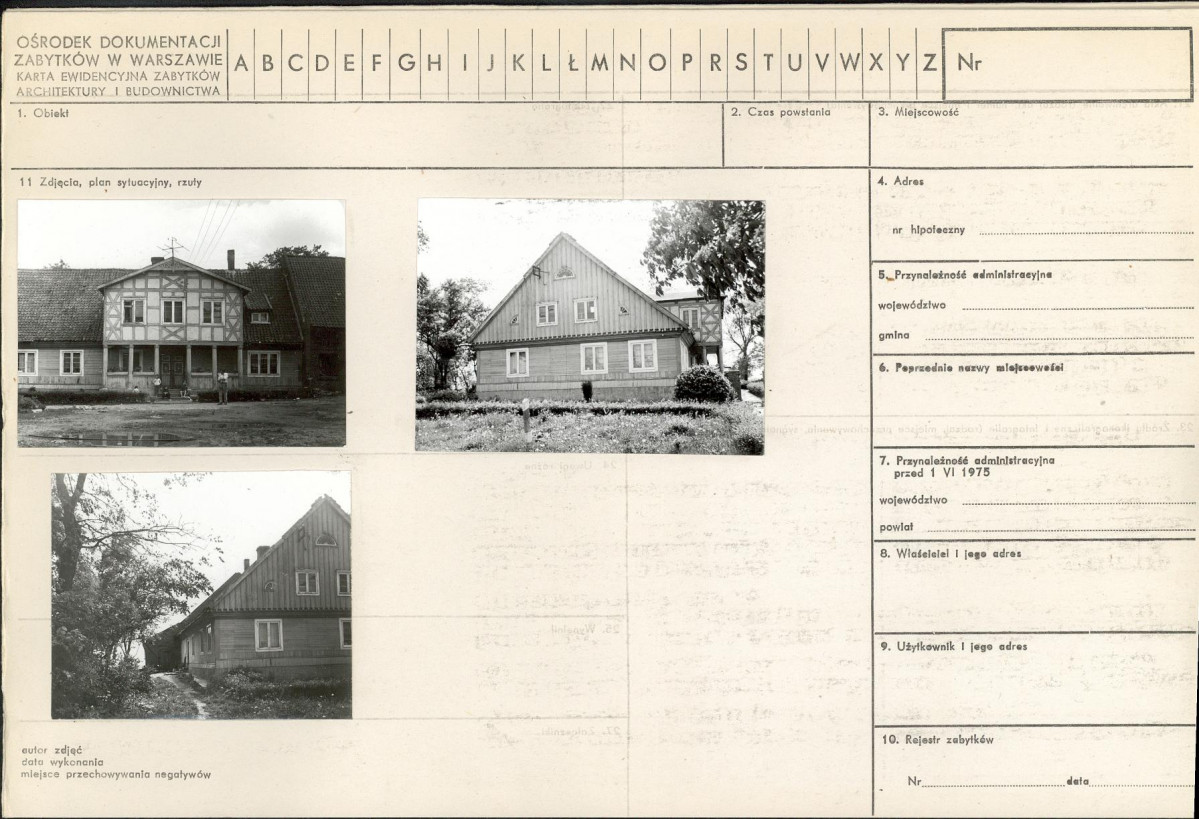 OŚRODEK DOKUMENTACJI
ZABYTKÓW W WARSZAWIE
KARTA EWIDENCYJNA ZABYTKÓW
ARCHITEKTURY I BUDOWNICTWA
A B C D E F G H I J K L Ł M N O P R S T U V W X Y Z
Nr
1. Obiekt
2. Czas powstania
3. Miejscowość
11 Zdjęcia, plan sytuacyjny, rzuty
4. Adres
nr hipoteczny
5. Przynależność administracyjna
województwo
gmina
6. Poprzednie nazwy miejscowości
7. Przynależność administracyjna
przed 1 VI 1975
województwo
powiat
8. Właściciel i jego adres
9. Użytkownik i jego adres
10. Rejestr zabytków
Nr data
autor zdjęć
data wykonania
miejsce przechowywania negatywów